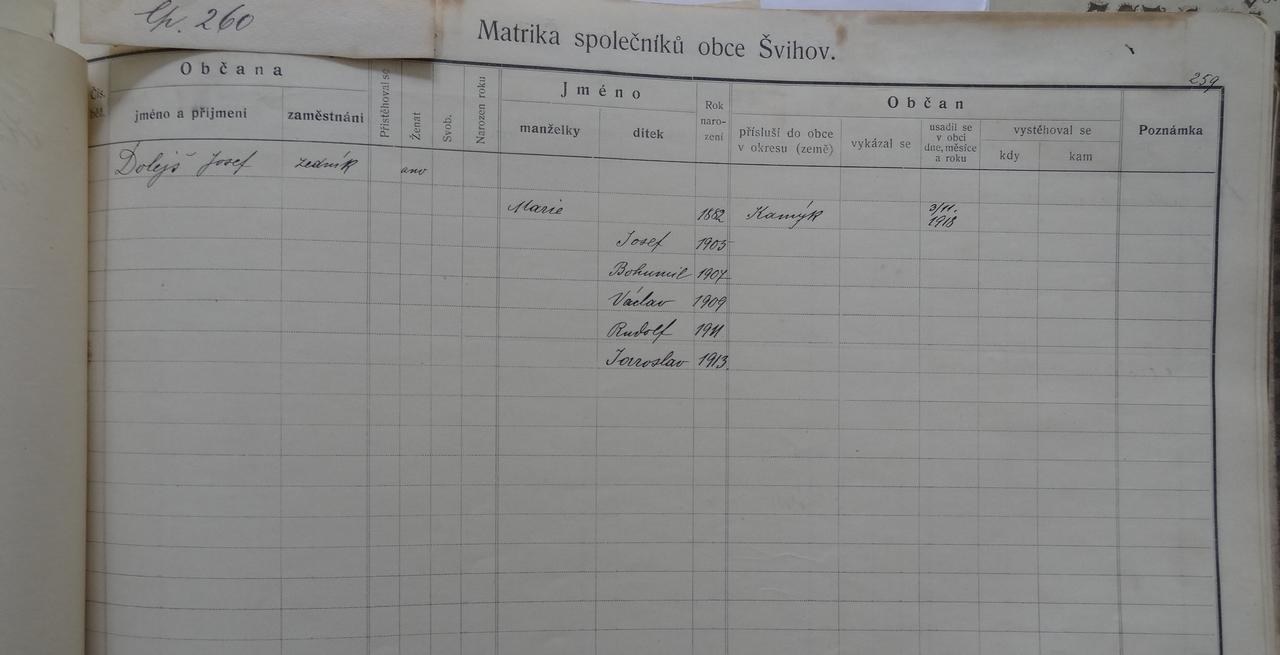 Čp. 260
Matrika společníků obce Švihov.
259
Čís. běž.
Občana
jméno a příjmení
zaměstnání
Přistěhoval se
Ženat
Svob.
Narozen roku
Jméno
manželky
dítek
Rok naro- zení
Občan
přísluší do obce v okresu (země)
vykázal se
usadil se v obci dne, měsíce a roku
vystěhoval se
kdy
kam
Poznámka
Dolejš Josef zedník ano
Marie 1882 Kamýk 3/11. 1918
Josef 1905
Bohumil 1907
Václav 1909
Rudolf 1911
Jaroslav 1913